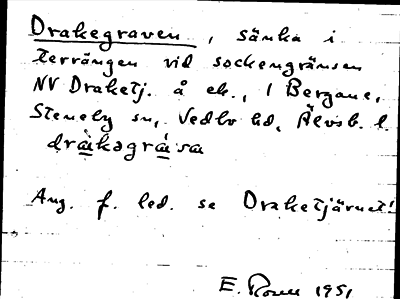 Drakegraven, sänka i
terrängen vid sockengränsen
NV Draketj. å ek., / Bergane,
Steneby sn, Vedbo hd, Älvsb. l.
dràkagrà'sa
Ang. f. led. se Draketjärnet!
E. 1951